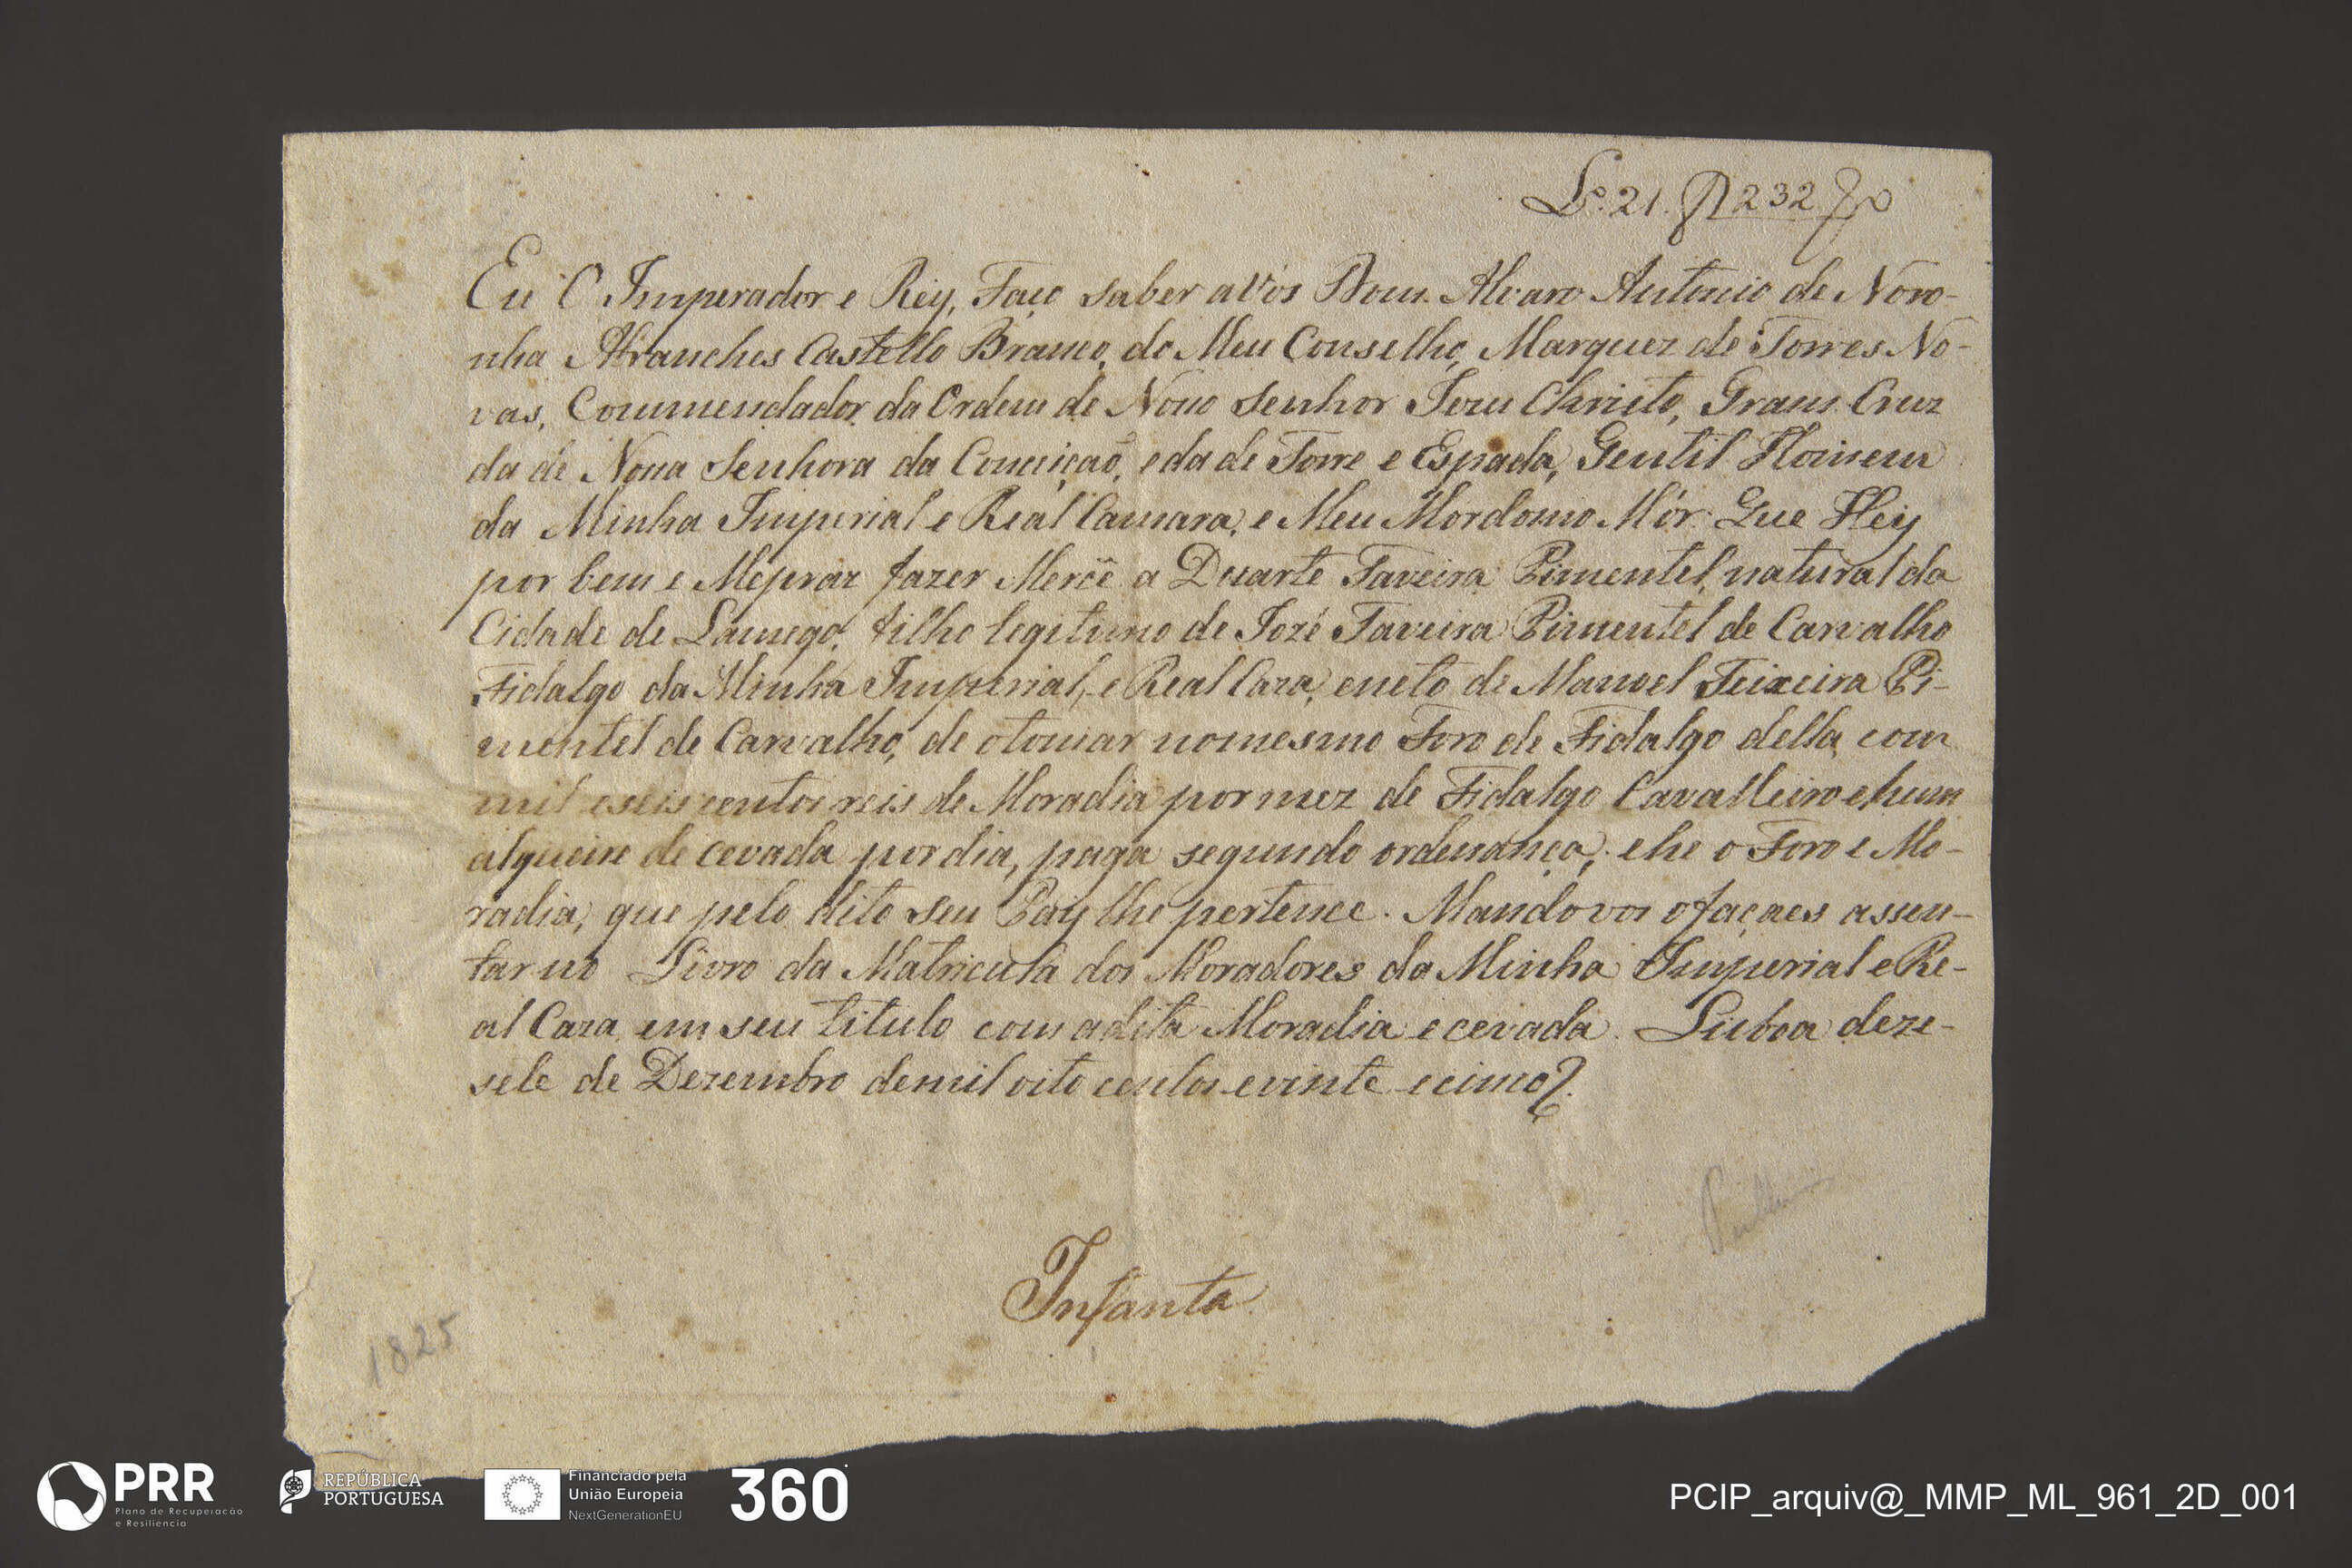 Lº. 21. fl 232
Eu O Imperador e Rey, Faço saber a Vós Dom Alvaro Antonio de Noro-
nha Abranches Castello Branco, do Meu Conselho, Marquez de Torres No-
vas, Commendador da Ordem de Nosso Senhor Jesu Christo, Gram Cruz
da de Nossa Senhora da Conceição, e da de Torre e Espada, Gentil Homem
da Minha Imperial e Real Camara, e Meu Mordomo Mór: Que Hey
por bem e Mepraz fazer Mercê a Duarte Taveira Pimentel, natural da
Cidade de Lamego, filho legitimo de Jozé Taveira Pimentel de Carvalho
Fidalgo da Minha Imperial, e Real Caza, eneto de Manoel Teixeira Pi-
mentel de Carvalho, de otomar nomesmo Foro de Fidalgo della, com
mil eseis centos reis de Moradia por mez de Fidalgo Cavalleiro ehum
alqueire de cevada por dia, paga segundo ordenança; ehe o Foro e Mo-
radia, que pelo dito seu Pay lhe pertence. Mandovos ofaçaes assen-
tar no Livro da Matricula dos Moradores da Minha Imperial e Re-
al Caza em seu titulo com adita Moradia e cevada. Lisboa deze-
sete de Dezembro demil oito centos evinte ecinco.
Infanta
1825
PRR
Plano de Recuperação
e Resiliência
REPÚBLICA
PORTUGUESA
Financiado pela
União Europeia
NextGenerationEU
360
PCIP_arquiv@_MMP_ML_961_2D_001